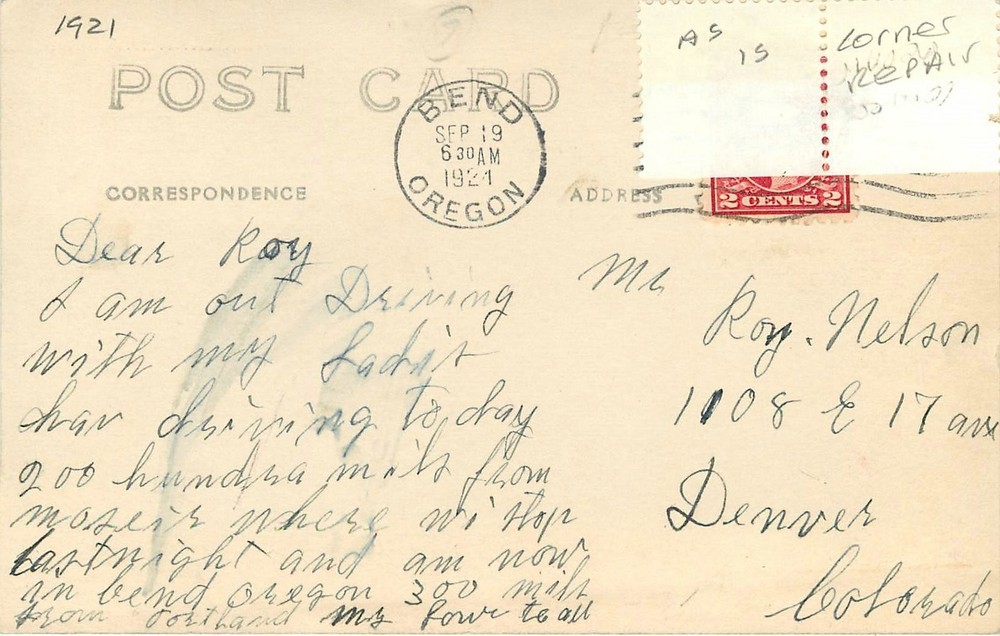 1921
AS IS
corner
REPAIR
POST CARD
BEND
SEP 19
6 30 AM
1921
OREGON
CORRESPONDENCE
ADDRESS
2 CENTS 2
Dear Roy
I am out Driving
with my Ladi's
hav driving to day
200 hundra mils from
moseir where wi stop
Last night and am now
in bend oregon 300 mils
from Portland my Love to all
Mr
Roy. Nelson
1108 E 17 ave
Denver
Colorado